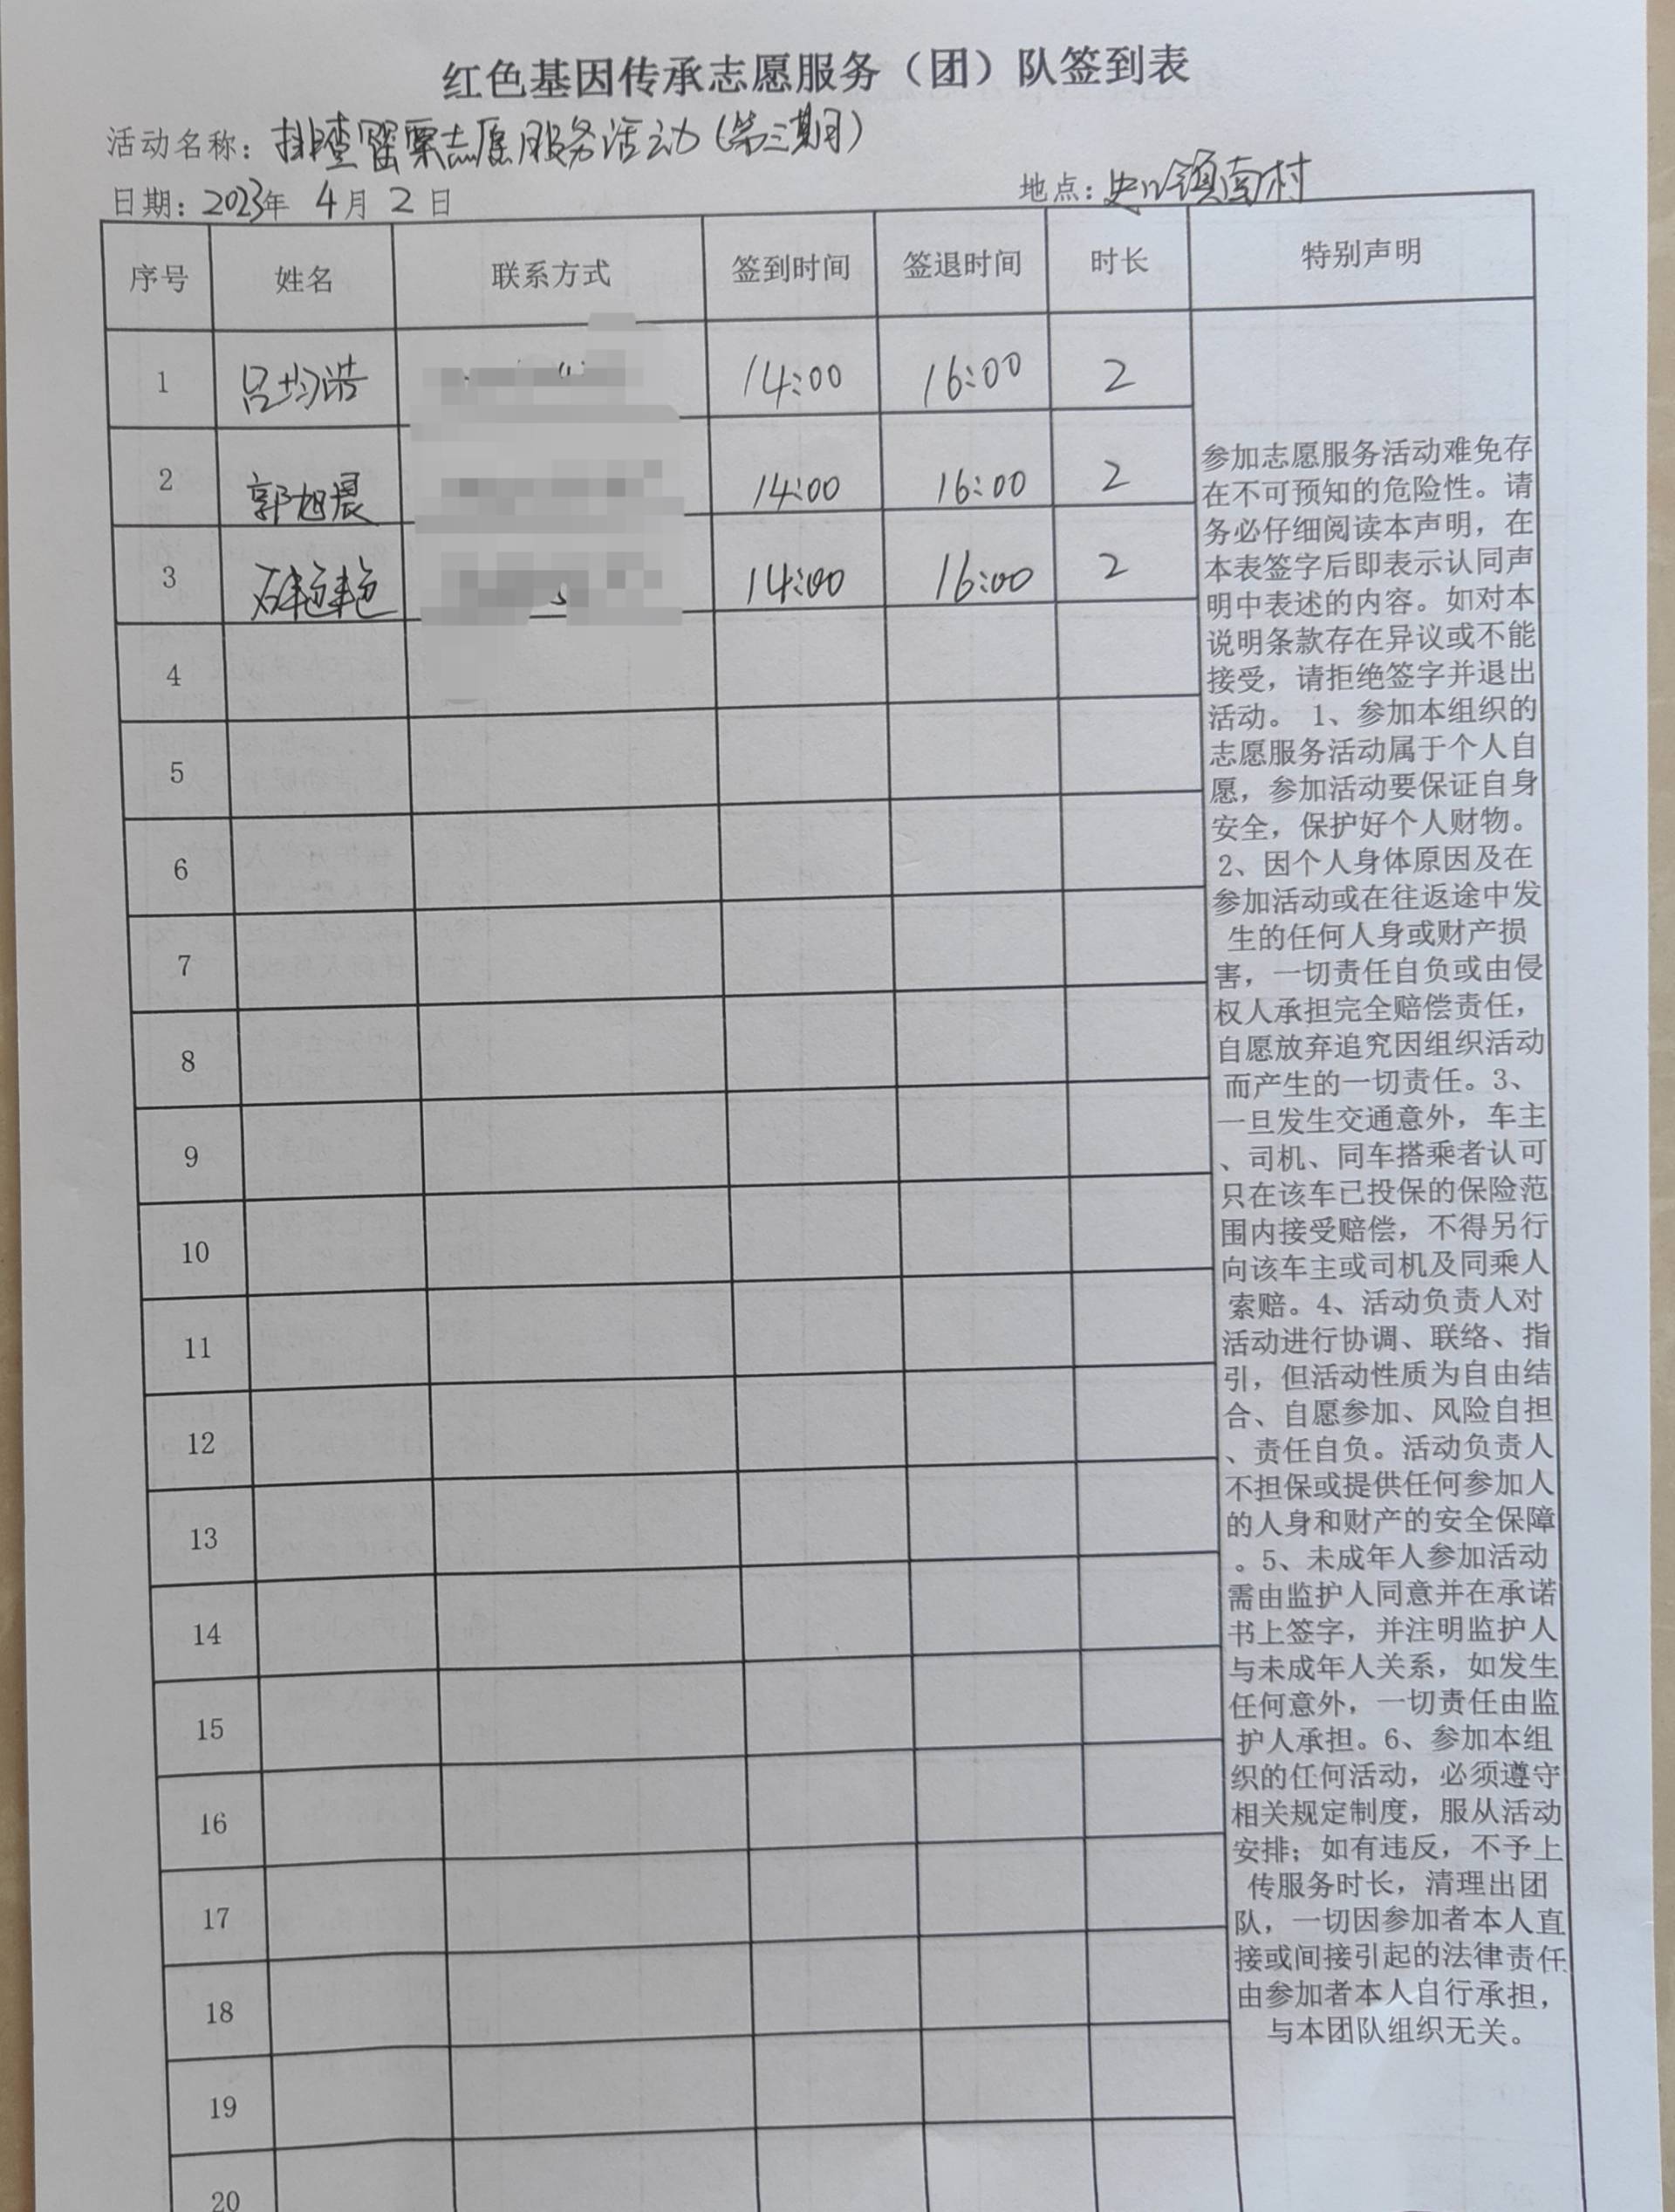 红色基因传承志愿服务（团）队签到表
活动名称：排查罂粟志愿服务活动（第三期）
日期：2023年 4月 2日 地点：史口镇南村
序号 姓名 联系方式 签到时间 签退时间 时长 特别声明
1 吕均浩 14:00 16:00 2
2 郭旭晨 14:00 16:00 2
3 14:00 16:00 2
4
5
6
7
8
9
10
11
12
13
14
15
16
17
18
19
20
参加志愿服务活动难免存
在不可预知的危险性。请
务必仔细阅读本声明，在
本表签字后即表示认同声
明中表述的内容。如对本
说明条款存在异议或不能
接受，请拒绝签字并退出
活动。 1、参加本组织的
志愿服务活动属于个人自
愿，参加活动要保证自身
安全，保护好个人财物。
2、因个人身体原因及在
参加活动或在往返途中发
生的任何人身或财产损
害，一切责任自负或由侵
权人承担完全赔偿责任，
自愿放弃追究因组织活动
而产生的一切责任。3、
一旦发生交通意外，车主
、司机、同车搭乘者认可
只在该车已投保的保险范
围内接受赔偿，不得另行
向该车主或司机及同乘人
索赔。4、活动负责人对
活动进行协调、联络、指
引，但活动性质为自由结
合、自愿参加、风险自担
、责任自负。活动负责人
不担保或提供任何参加人
的人身和财产的安全保障
。5、未成年人参加活动
需由监护人同意并在承诺
书上签字，并注明监护人
与未成年人关系，如发生
任何意外，一切责任由监
护人承担。6、参加本组
织的任何活动，必须遵守
相关规定制度，服从活动
安排；如有违反，不予上
传服务时长，清理出团
队，一切因参加者本人直
接或间接引起的法律责任
由参加者本人自行承担，
与本团队组织无关。